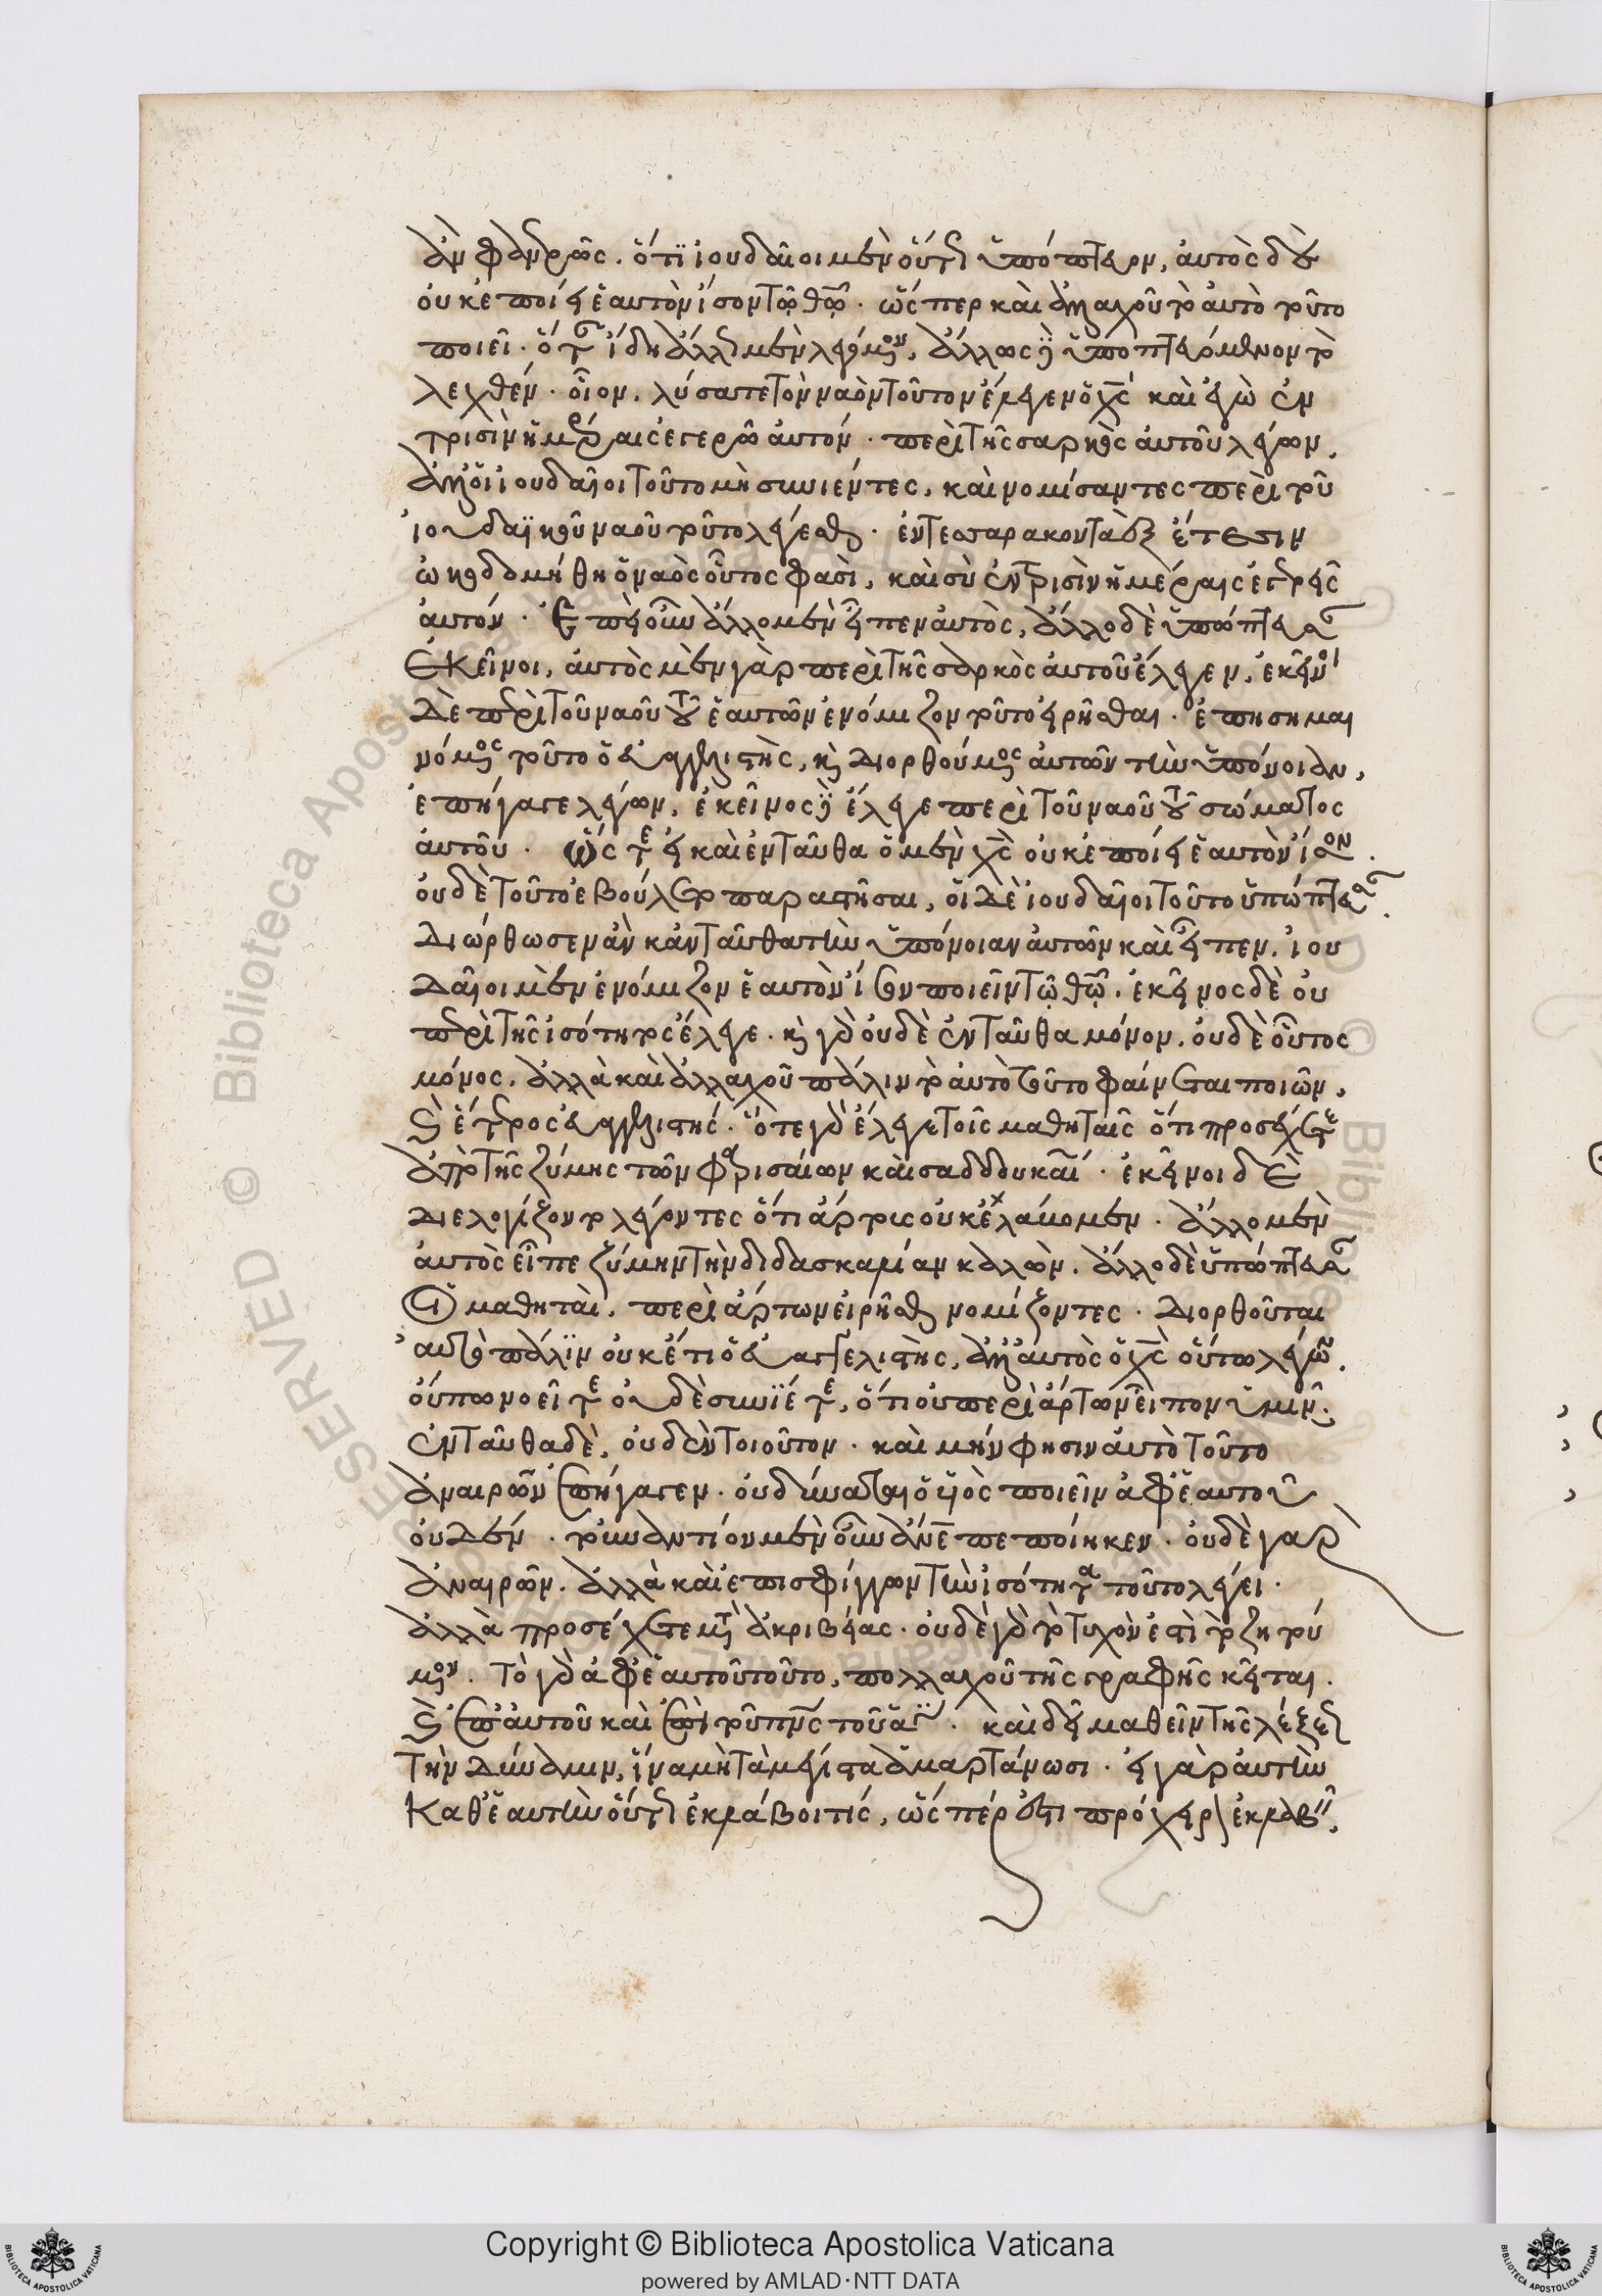 ἂν φανερῶς. ὅτι ἰουδαῖοι μὲν οὕτως ὑπόπτευον, αὐτὸς δὲ
οὐκ ἐποίει ἑαυτὸν ἴσον τῷ θῷ. ὥσπερ καὶ ἀλλαχοῦ τὸ αὐτὸ τοῦτο
ποιεῖ. ὅταν ἴδη ἄλλως μὲν λεγόμενον, ἄλλως δὲ ὑποπτευόμενον τὸ
λεχθέν. οἷον. λύσατε τὸν ναὸν τοῦτον ἔλεγεν ὁ χς καὶ ἐγὼ ἐν
τρισὶν ἡμέραις ἐγερῶ αὐτόν. περὶ τῆς σαρκὸς αὐτοῦ λέγων.
ἀλλ' οἱ ἰουδαῖοι τοῦτο μὴ συνιέντες, καὶ νομίσαντες περὶ τοῦ
ἰουδαϊκοῦ ναοῦ τοῦτο λέγεσθαι. ἐν τεσσαρακονταὲξ ἔτεσιν
ὠκοδομήθη ὁ ναὸς οὗτος φασὶ, καὶ σὺ ἐν τρισὶν ἡμέραις ἐγερεῖς
αὐτόν. Ἐπεὶ οὖν ἄλλο μὲν εἶπεν αὐτὸς, ἄλλο δὲ ὑπώπτευσαν
ἐκεῖνοι, αὐτὸς μὲν γὰρ περὶ τῆς σαρκὸς αὐτοῦ ἔλεγεν, ἐκεῖνοι
δὲ περὶ τοῦ ναοῦ τοῦ ἑαυτῶν ἐνόμιζον τοῦτο εἰρῆσθαι. ἐπισημαι
νόμενος τοῦτο ὁ εὐαγγελιστὴς, καὶ διορθούμενος αὐτῶν τὴν ὑπόνοιαν,
ἐπήγαγε λέγων, ἐκεῖνος δὲ ἔλεγε περὶ τοῦ ναοῦ τοῦ σώματος
αὐτοῦ. Ὥστε εἰ καὶ ἐνταῦθα ὁ μὲν χς οὐκ ἐποίει ἑαυτὸν ἴσον.
οὐδὲ τοῦτο ἐβούλετο παραστῆσαι, οἱ δὲ ἰουδαῖοι τοῦτο ὑπώπτευσαν.
διώρθωσεν ἂν κἀνταῦθα τὴν ὑπόνοιαν αὐτῶν καὶ εἶπεν. ἰου
δαῖοι μὲν ἐνόμιζον ἑαυτὸν ἴσον ποιεῖν τῷ θῷ. ἐκεῖνος δὲ οὐ
περὶ τῆς ἰσότητος ἔλεγε. καὶ γὰρ οὐδὲ ἐνταῦθα μόνον. οὐδὲ οὗτος
μόνος. ἀλλὰ καὶ ἀλλαχοῦ πάλιν τὸ αὐτὸ τοῦτο φαίνεται ποιῶν.
καὶ ἕτερος εὐαγγελιστής. ὅτε γὰρ ἔλεγε τοῖς μαθηταῖς ὅτι προσέχετε
ἀπὸ τῆς ζύμης τῶν φαρισαίων καὶ σαδδουκαί. ἐκεῖνοι δὲ
διελογίζοντο λέγοντες ὅτι ἄρτους οὐκ ἐλάβομεν. ἄλλο μὲν
αὐτὸς εἶπε ζύμην τὴν διδασκαλίαν καλῶν. ἄλλο δὲ ὑπώπτευσαν
οἱ μαθηταὶ. περὶ ἄρτων εἰρῆσθαι νομίζοντες. διορθοῦται
αὐτὸ πάλιν οὐκέτι ὁ εὐαγγελιστὴς, ἀλλ' αὐτὸς ὁ χς οὕτω λέγων.
οὔπω νοεῖτε οὐδὲ συνίετε, ὅτι οὐ περὶ ἄρτων εἶπον ὑμῖν;
ἐνταῦθα δὲ, οὐδὲν τοιοῦτον. καὶ μήν φησιν αὐτὸ τοῦτο
ἀναιρῶν ἐπήγαγεν. οὐ δύναται ὁ υἱὸς ποιεῖν ἀφ' ἑαυτοῦ
οὐδέν. τοὐναντίον μὲν οὖν ἄνε πεποίηκεν. οὐδὲ γὰρ
ἀναιρῶν. ἀλλὰ καὶ ἐπισφίγγων τὴν ἰσότητα τοῦτο λέγει.
ἀλλὰ προσέχετε μετὰ ἀκριβείας. οὐδὲ γὰρ τὸ τυχὸν ἐστὶ τὸ ζητού
μενον. τὸ γὰρ ἀφ' ἑαυτοῦ τοῦτο, πολλαχοῦ τῆς γραφῆς κεῖται.
καὶ ἐπ' αὐτοῦ καὶ ἐπὶ τοῦ πνς τοῦ ἁγίου. καὶ δεῖ μαθεῖν τῆς λέξεως
τὴν δύναμιν, ἵνα μὴ τὰ μέγιστα ἁμαρτάνωσι. εἰ γὰρ αὐτὴν
καθ' ἑαυτὴν οὕτως ἐκλάβοι τίς, ὥσπερ ἐστι πρόχειρος ἐκλαβεῖν,